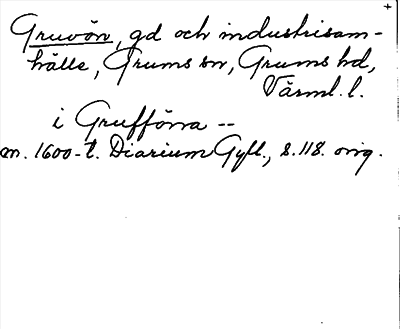 Gruvön, gd och industrisam-
hälle, Grums sn, Grums hd,
Värml. l.
i Grufföna --
m. 1600-t. Diarium Gyll., s. 118. orig.